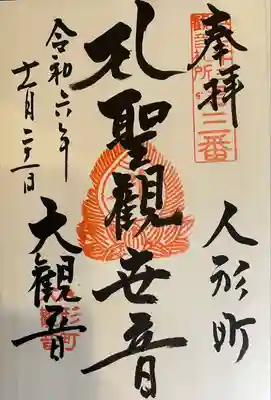 奉拝
三番
人形町
礼聖觀世音
大觀音
令和六年
十一月二十一日